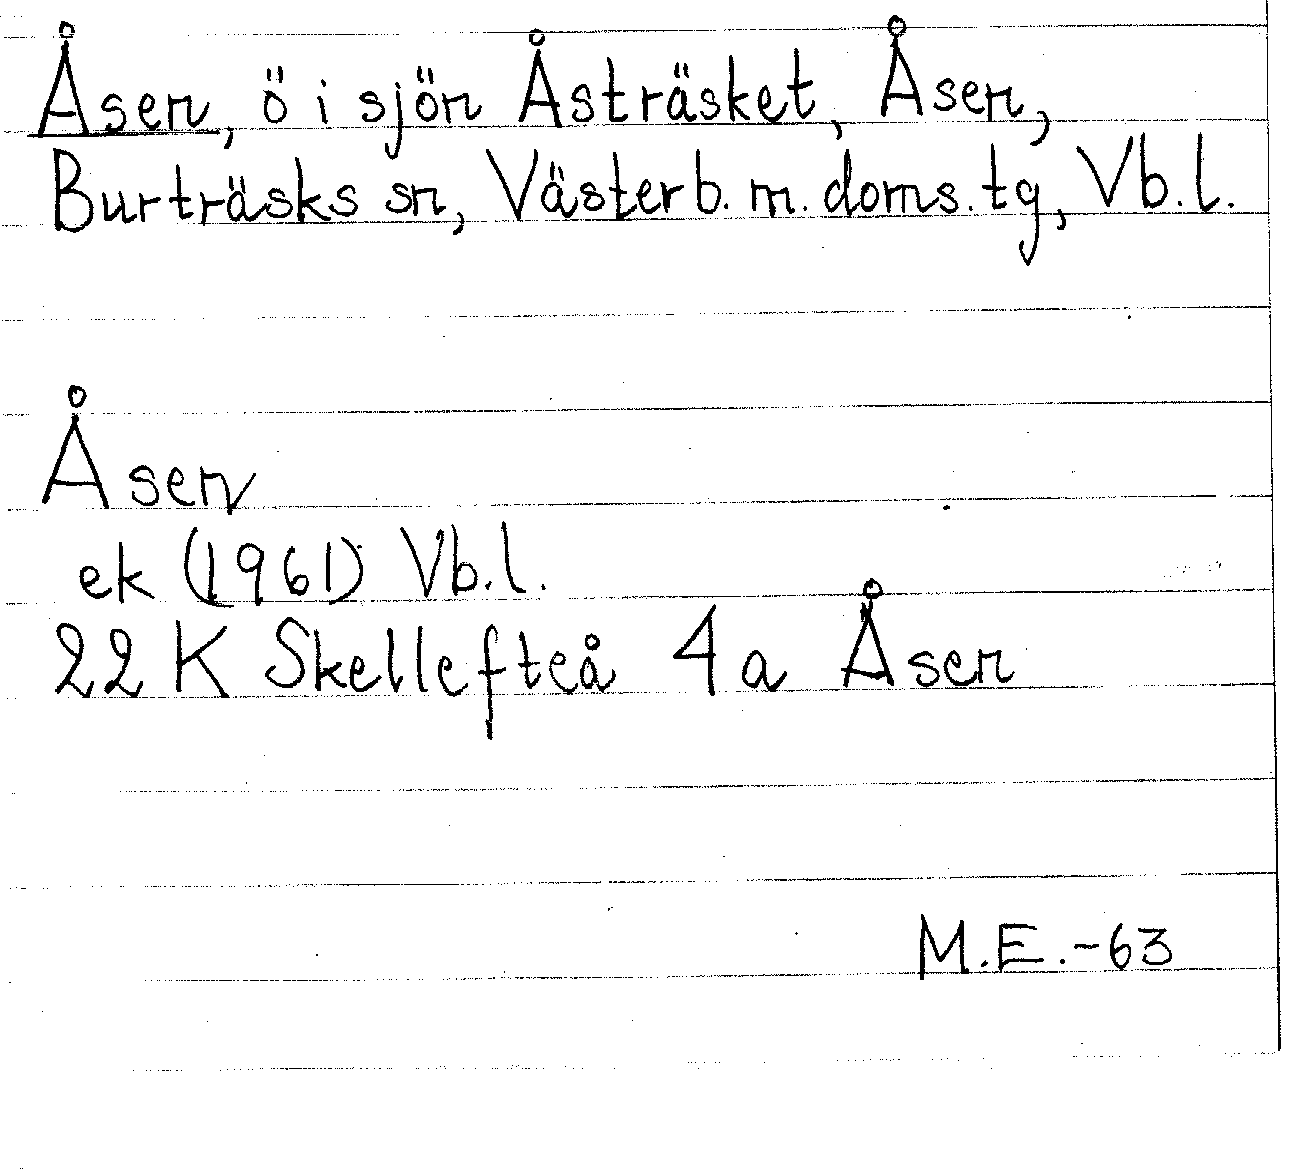 Åsen, ö i sjön Åsträsket, Åsen,
Burträsks sn, Västerb. m. doms. tg, Vb. l.
Åsen
ek (1961) Vb. l.
22 K Skellefteå 4 a Åsen
M.E.-63